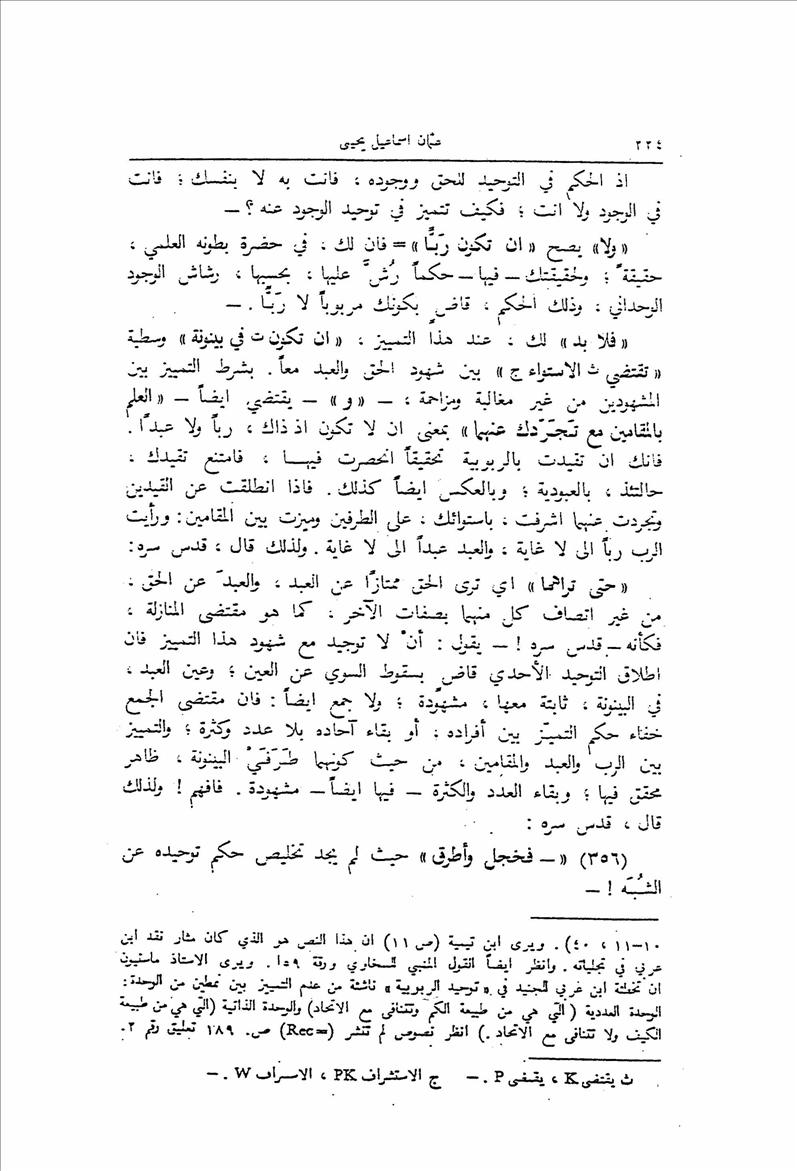 ٢٢٤ عثمان اسماعيل يحيى
اذ الحكم في التوحيد للحق ووجوده ، فانت به لا بنفسك ؛ فانت
في الوجود ولا انت ؛ فكيف تتميز في توحيد الوجود عنه ؟ —
«ولا» يصح « ان تكون ربًّا » = فان لك ، في حضرة بطونه العلمي ،
حقيقةً ؛ ولحقيقتك — فيها — حكماً رُشَّ عليها ، بحسبها ، رشاش الوجود
الوحداني ، وذلك الحكم ، قاضٍ بكونك مربوباً لا رَبًّا . —
«فلا بد» لك ، عند هذا التمييز ، « ان تكون ت في بينونة » وسطية
« تقتضي ث الاستواء ج » بين شهود الحق والعبد معاً . بشرط التمييز بين
المشهودين من غير مغالبة ومزاحمة ، — « و » — يقتضي ايضاً — « العلم
بالمقامين مع تَجَرّدك عنهما » بمعنى ان لا تكون اذ ذاك ، رباً ولا عبداً .
فانك ان تقيدت بالربوبية تحقيقاً انحصرت فيها ، فامتنع تقيدك ،
حالتئذ ، بالعبودية ؛ وبالعكس ايضاً كذلك . فاذا انطلقت عن القيدين
وتجردت عنهما اشرفت ، باستوائك ، على الطرفين وميزت بين المقامين : ورأيت
الرب رباً الى لا غاية ، والعبد عبداً الى لا غاية . ولذلك قال ، قدس سره :
« حتى تراهما » اي ترى الحق ممتازًا عن العبد ، والعبدَ عن الحق ،
من غير اتصاف كل منهما بصفات الآخر ، كما هو مقتضى المنازلة ،
فكأنه — قدس سره ! — يقول : أنْ لا توحيد مع شهود هذا التمييز فان
اطلاق التوحيد الأحدي قاضٍ بسقوط السوي عن العين ؛ وعين العبد ،
في البينونة ، ثابتة معها ، مشهودة ؛ ولا جمع ايضاً : فان مقتضى الجمع
خفاء حكم التميّز بين أفراده ؛ أو بقاء آحاده بلا عدد وكثرة ؛ والتمييز
بين الرب والعبد والمقامين ، من حيث كونهما طَرَفَيْ البينونة ، ظاهر
محقق فيها ؛ وبقاء العدد والكثرة — فيها ايضاً — مشهودة . فافهم ! ولذلك
قال ، قدس سره :
(٣٥٦) « — فخجل وأطرق » حيث لم يجد تخليص حكم توحيده عن
الشُبَه ! —
١٠–١١ ، ٤٠) . ويرى ابن تيمية (ص ١١) ان هذا النص هو الذي كان مثار نقد ابن
عربي في تجلياته . وانظر ايضاً القول المنبي للسخاوي ورقة ٥٩ا . ويرى الاستاذ ماسنيون
ان تخطئة ابن عربي للجنيد في « توحيد الربوبية » ناشئة من عدم التمييز بين نمطين من الوحدة :
الوحدة العددية ( التي هي من طبيعة الكم وتتنافى مع الاتحاد) والوحدة الذاتية (التي هي من طبيعة
الكيف ولا تتنافى مع الاتحاد .) انظر نصوص لم تنشر (=Rec) ص. ١٨٩ تعليق رقم ٢.
ث يقتفى K ، يقتفى P . — ج الاستشراف PK ، الاسراف W . —